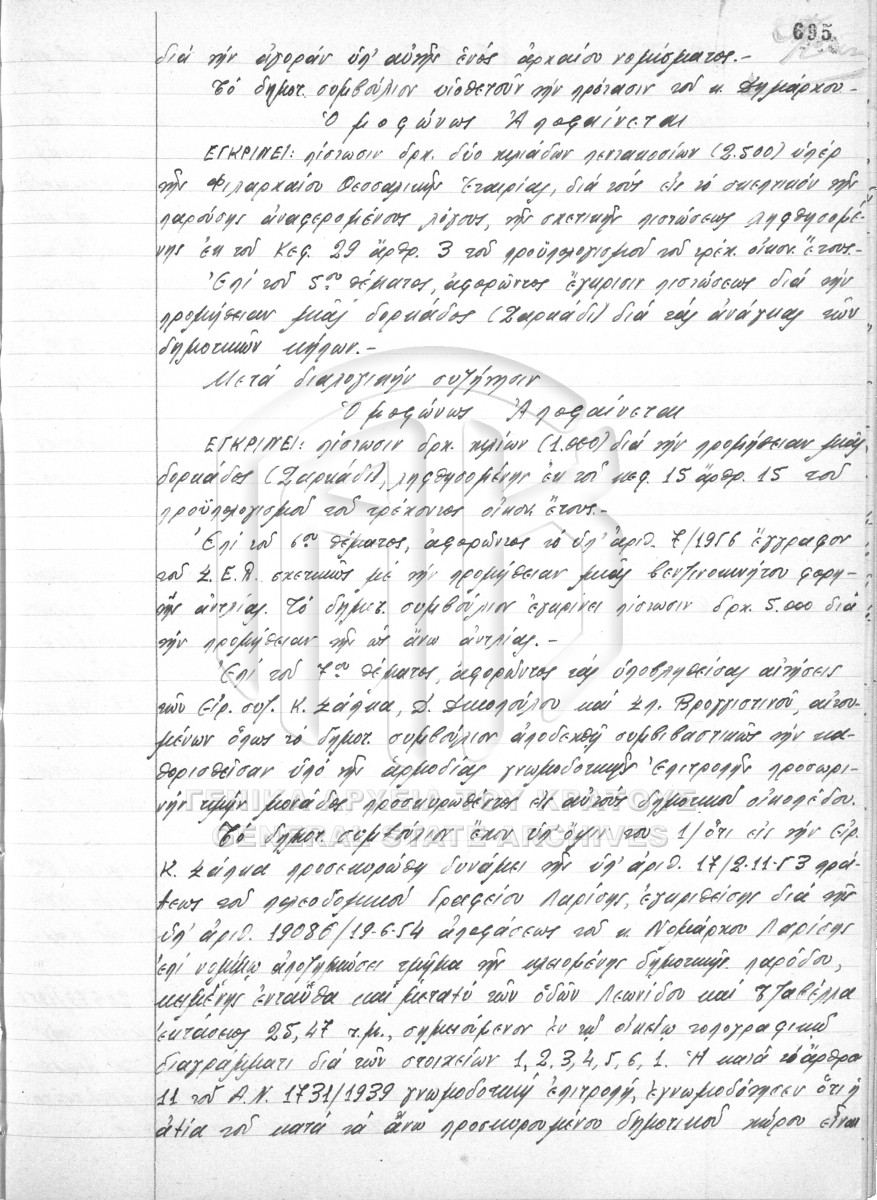 695
διά τήν ἀγοράν ὑπ' αὐτῆς ἑνός ἀρχαίου νομίσματος.-
Τό δημοτ. συμβούλιον υἱοθετοῦν τήν πρότασιν τοῦ κ. Δημάρχου-
Ὁ μ ο φ ώ ν ω ς Ἀ π ο φ α ί ν ε τ α ι
ΕΓΚΡΙΝΕΙ: πίστωσιν δρχ. δύο χιλιάδων πεντακοσίων (2.500) ὑπέρ
τῆς Φιλαρχαίου Θεσσαλικῆς Ἑταιρίας, διά τούς εἰς τό σκεπτικόν τῆς
παρούσης ἀναφερομένους λόγους, τῆς σχετικῆς πιστώσεως ληφθησομέ-
νης ἐκ τοῦ Κεφ. 29 ἄρθρ. 3 τοῦ προϋπολογισμοῦ τοῦ τρέχ. οἰκον. ἔτους.-
Ἐπί τοῦ 5ου θέματος, ἀφορῶντος ἔγκρισιν πιστώσεως διά τήν
προμήθειαν μιᾶς δορκάδος (Ζαρκάδι) διά τάς ἀνάγκας τῶν
δημοτικῶν κήπων.-
Μετά διαλογικήν συζήτησιν
Ὁ μ ο φ ώ ν ω ς Ἀ π ο φ α ί ν ε τ α ι
ΕΓΚΡΙΝΕΙ: πίστωσιν δρχ. χιλίων (1.000) διά τήν προμήθειαν μιᾶς
δορκάδος (Ζαρκάδι), ληφθησομένης ἐκ τοῦ κεφ. 15 ἄρθρ. 15 τοῦ
προϋπολογισμοῦ τοῦ τρέχοντος οἰκον. ἔτους.-
Ἐπί τοῦ 6ου θέματος, ἀφορῶντος τό ὑπ' ἀριθ. 7/1956 ἔγγραφον
τοῦ Σ.Ε.Π. σχετικῶς μέ τήν προμήθειαν μιᾶς βενζινοκινήτου φορη-
τῆς ἀντλίας. Τό δημοτ. συμβούλιον ἐγκρίνει πίστωσιν δρχ. 5.000 διά
τήν προμήθειαν τῆς ὡς ἄνω ἀντλίας.-
Ἐπί τοῦ 7ου θέματος, ἀφορῶντος τάς ὑποβληθείσας αἰτήσεις
τῶν Εἰρ. συζ. Κ. Σάλκα, Δ. Δικοπούλου καί Σπ. Βρογγιστινοῦ, αἰτου-
μένων ὅπως τό δημοτ. συμβούλιον ἀποδεχθῇ συμβιβαστικῶς τήν κα-
θορισθεῖσαν ὑπό τῆς ἁρμοδίας γνωμοδοτικῆς Ἐπιτροπῆς προσωρι-
νήν τιμήν μονάδος προσκυρωθέντος εἰς αὐτούς δημοτικοῦ οἰκοπέδου.
ΓΕΝΙΚΑ ΑΡΧΕΙΑ ΤΟΥ ΚΡΑΤΟΥΣ
GENERAL STATE ARCHIVES
Τό δημοτ. συμβούλιον ἔχον ὑπ' ὄψιν του 1/ ὅτι εἰς τήν Εἰρ.
Κ. Σάλκα προσεκυρώθη δυνάμει τῆς ὑπ' ἀριθ. 17/2-11-53 πρά-
ξεως τοῦ πολεοδομικοῦ Γραφείου Λαρίσης, ἐγκριθείσης διά τῆς
ὑπ' ἀριθ. 19086/19-6-54 ἀποφάσεως τοῦ κ. Νομάρχου Λαρίσης
ἐπί νομίμῳ ἀποζημιώσει τμῆμα τῆς κλειομένης δημοτικῆς παρόδου,
κειμένης ἐνταῦθα καί μεταξύ τῶν ὁδῶν Λεωνίδου καί Τζαβέλλα
ἐκτάσεως 25,47 τ.μ., σημειούμενον ἐν τῷ οἰκείῳ τοπογραφικῷ
διαγράμματι διά τῶν στοιχείων 1, 2, 3, 4, 5, 6, 1. Ἡ κατά τό ἄρθρον
11 τοῦ Α.Ν. 1731/1939 γνωμοδοτική ἐπιτροπή, ἐγνωμοδότησεν ὅτι ἡ
ἀξία τοῦ κατά τά ἄνω προσκυρουμένου δημοτικοῦ χώρου εἶναι